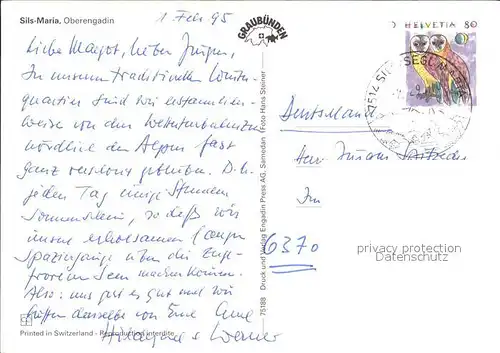 Sils-Maria, Oberengadin
1 Feb 95
GRAUBÜNDEN
HELVETIA 80
7514 SILS/SEGL MARIA
Liebe Margot, lieber Jürgen,
In unserem traditionellen Winter-
quartier sind wir erstaunlicher-
weise von den Wetterturbulenzen
nördlich der Alpen fast
ganz verschont geblieben. D.h.
jeden Tag einige Stunden
Sonnenschein, so daß wir
unsere erholsamen langen
Spaziergänge über die zuge-
frorenen Seen machen können.
Also: uns geht es gut und wir
hoffen dasselbe von Euch
Hildegard + Werner
Deutschland
Herr
Im
6370
privacy protection
Datenschutz
75188 Druck und Verlag Engadin Press AG, Samedan (Foto Hans Steiner)
Printed in Switzerland - Reproduction interdite